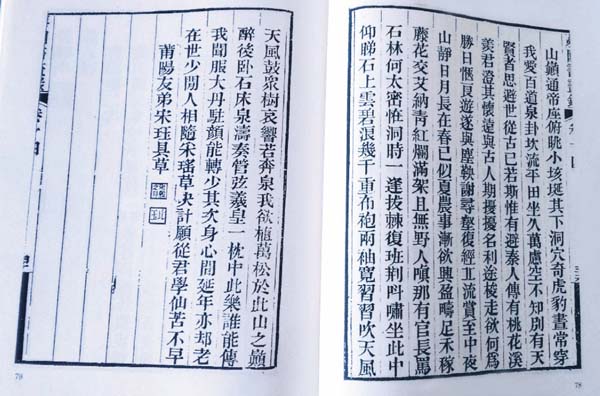 山巓通帝座俯眺小垓埏其下洞穴奇虎豹晝常穿
我愛百道泉卦坎流平田坐久萬慮空不知别有天
賢者思避世從古已若斯惟有避秦人傳有桃花溪
羡君澄其懷遠與古人期擾擾名利途棱走欲何爲
勝日愜夏遊遂與塵鞅謝尋壑復經丘流賞至中夜
山靜日月長在春已似夏農事漸欲興盈疇足禾稼
藤花交叉納青紅爛滿架且無野人嗔那有官長罵
石林何太密恠洞時一逢披棘復班荆呌嘯坐此中
仰睇石上雲碧浪幾千重布袍兩袖寬習習吹天風
78
天風鼓衆樹哀響若奔泉我欲植萬松於此山之巓
醉後卧石床泉濤奏管弦羲皇一枕中此樂誰能傳
我聞服大丹駐顔能轉少其次身心閒延年亦却老
在世少閒人相隨宋瑤草决計願從君學仙苦不早
莆陽友弟宋珏具草
卷十四
79